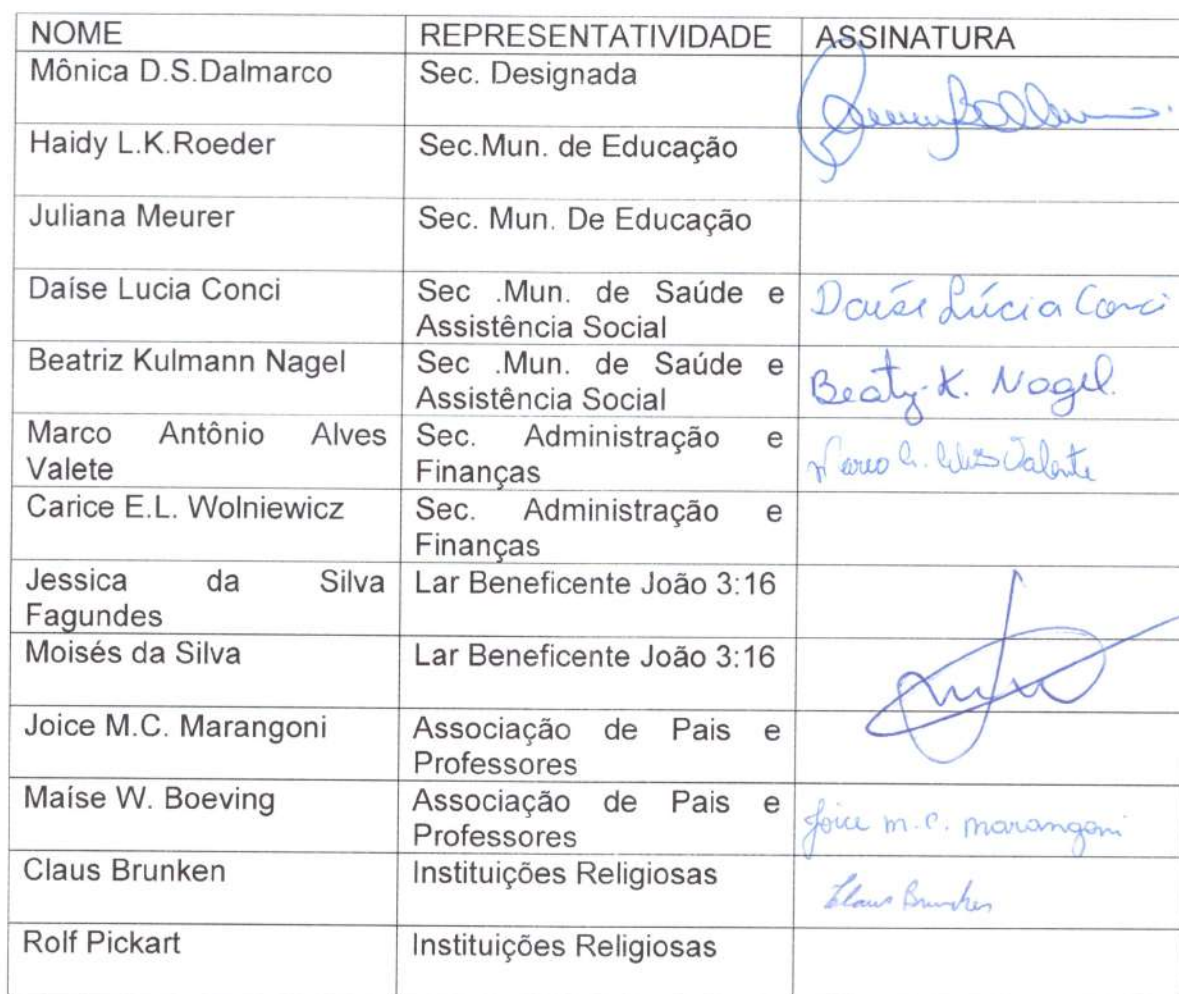 NOME REPRESENTATIVIDADE ASSINATURA
Mônica D.S.Dalmarco Sec. Designada
Haidy L.K.Roeder Sec.Mun. de Educação
Juliana Meurer Sec. Mun. De Educação
Daíse Lucia Conci Sec .Mun. de Saúde e Daíse Lúcia Conci
Assistência Social
Beatriz Kulmann Nagel Sec .Mun. de Saúde e K. Nagel
Assistência Social
Marco Antônio Alves Sec. Administração e Marco A. Alves Valente
Valete Finanças
Carice E.L. Wolniewicz Sec. Administração e
Finanças
Jessica da Silva Lar Beneficente João 3:16
Fagundes
Moisés da Silva Lar Beneficente João 3:16
Joice M.C. Marangoni Associação de Pais e
Professores
Maíse W. Boeving Associação de Pais e Joice M.C. Marangoni
Professores
Claus Brunken Instituições Religiosas Claus Brunken
Rolf Pickart Instituições Religiosas